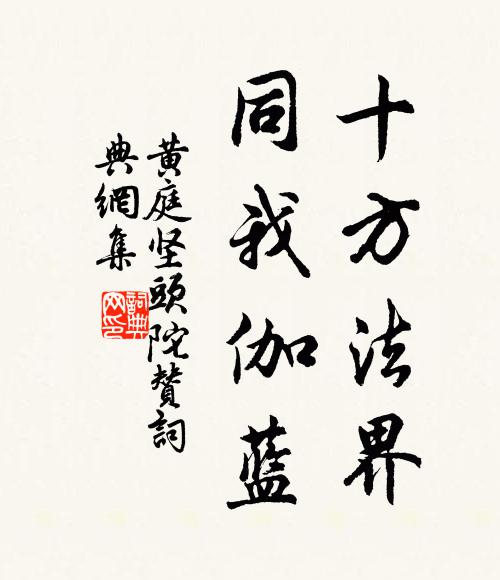 十方法界
同我伽藍
黄庭坚頭陀赞詞
典網集
詞典网印